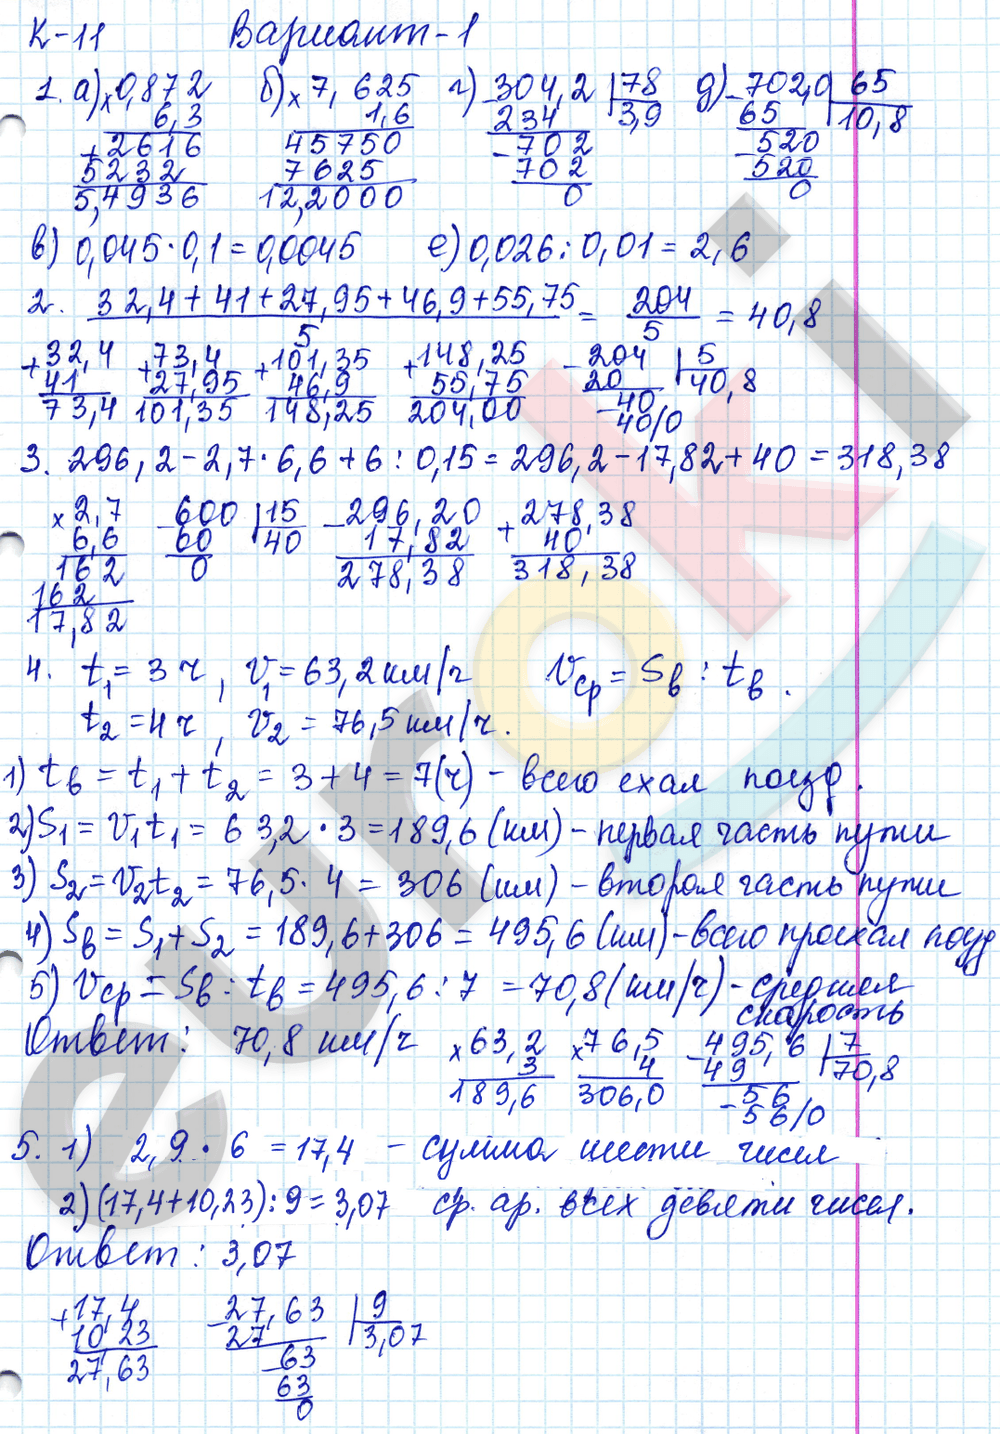 К-11 Вариант-1
1. а) ×0,872 б) ×7,625 г) -304,2 |78 д) -702,0 |65
6,3 1,6 234 3,9 65 10,8
+2616 45750 -702 -520
5232 7625 702 520
5,4936 12,2000 0 0
в) 0,045·0,1=0,0045 е) 0,026:0,01=2,6
2. 32,4+41+27,95+46,9+55,75 = 204 = 40,8
5 5
+32,4 +73,4 +101,35 +148,25 -204 |5
41 27,95 46,9 55,75 20 40,8
73,4 101,35 148,25 204,00 -40
40/0
3. 296,2-2,7·6,6+6:0,15=296,2-17,82+40=318,38
×2,7 -600 |15 -296,20 +278,38
6,6 60 40 17,82 40
162 0 278,38 318,38
162
17,82
4. t₁=3 ч, v₁=63,2 км/ч Vср=Sв:tв.
t₂=4 ч, v₂=76,5 км/ч.
1) tв=t₁+t₂=3+4=7(ч) - всего ехал поезд.
2) S₁=v₁t₁=63,2·3=189,6 (км) - первая часть пути
3) S₂=v₂t₂=76,5·4=306 (км) - вторая часть пути
4) Sв=S₁+S₂=189,6+306=495,6 (км) - всего проехал поезд
5) Vср=Sв:tв=495,6:7=70,8 (км/ч) - средняя
скорость
Ответ: 70,8 км/ч ×63,2 ×76,5 -495,6 |7
3 4 49 70,8
189,6 306,0 -56
56/0
5. 1) 2,9·6=17,4 - сумма шести чисел
2) (17,4+10,23):9=3,07 ср. ар. всех девяти чисел.
Ответ: 3,07
+17,4 -27,63 |9
10 23 27 3,07
27,63 -63
63
0
euroki